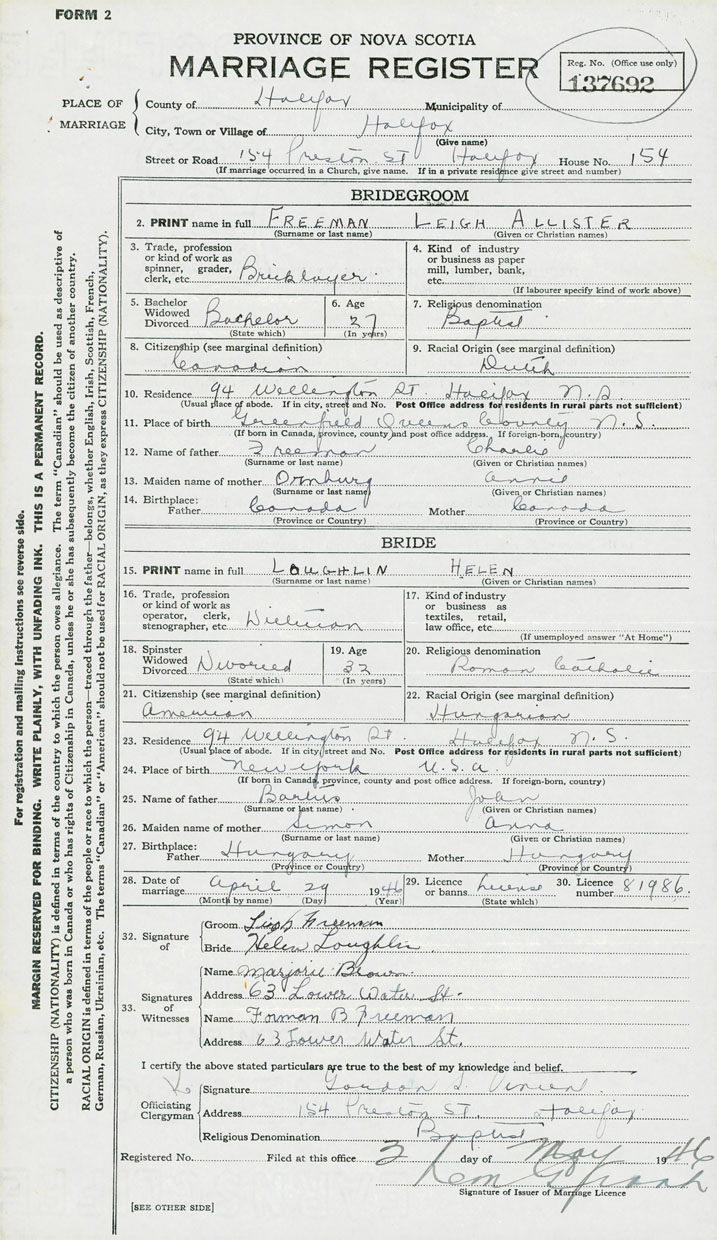 FORM 2
PROVINCE OF NOVA SCOTIA
MARRIAGE REGISTER
Reg. No. (Office use only)
137692
PLACE OF MARRIAGE
County of Halifax Municipality of
City, Town or Village of Halifax
(Give name)
Street or Road 154 Preston St Halifax House No. 154
(If marriage occurred in a Church, give name. If in a private residence give street and number)
BRIDEGROOM
2. PRINT name in full FREEMAN LEIGH ALLISTER
(Surname or last name) (Given or Christian names)
3. Trade, profession or kind of work as spinner, grader, clerk, etc. Bricklayer
4. Kind of industry or business as paper mill, lumber, bank, etc.
(If labourer specify kind of work above)
5. Bachelor Widowed Divorced Bachelor (State which)
6. Age 27 (In years)
7. Religious denomination Baptist
8. Citizenship (see marginal definition) Canadian
9. Racial Origin (see marginal definition) Dutch
10. Residence 94 Wellington St Halifax N.S.
(Usual place of abode. If in city, street and No. Post Office address for residents in rural parts not sufficient)
11. Place of birth Greenfield Queens County N.S.
(If born in Canada, province, county and post office address. If foreign-born, country)
12. Name of father Freeman Charlie
(Surname or last name) (Given or Christian names)
13. Maiden name of mother Ornburg Annie
(Surname or last name) (Given or Christian names)
14. Birthplace: Father Canada Mother Canada
(Province or Country) (Province or Country)
BRIDE
15. PRINT name in full LOUGHLIN HELEN
(Surname or last name) (Given or Christian names)
16. Trade, profession or kind of work as operator, clerk, stenographer, etc.
17. Kind of industry or business as textiles, retail, law office, etc.
(If unemployed answer "At Home")
18. Spinster Widowed Divorced Divorced (State which)
19. Age 32 (In years)
20. Religious denomination Roman Catholic
21. Citizenship (see marginal definition) American
22. Racial Origin (see marginal definition) Hungarian
23. Residence 94 Wellington St. Halifax N.S.
(Usual place of abode. If in city, street and No. Post Office address for residents in rural parts not sufficient)
24. Place of birth New York U.S.A.
(If born in Canada, province, county and post office address. If foreign-born, country)
25. Name of father John
(Surname or last name) (Given or Christian names)
26. Maiden name of mother Simon Anna
(Surname or last name) (Given or Christian names)
27. Birthplace: Father Hungary Mother Hungary
(Province or Country) (Province or Country)
28. Date of marriage April 29 1946
(Month by name) (Day) (Year)
29. Licence or banns License (State which)
30. Licence number 81986.
32. Signature of
Groom Leigh Freeman
Bride Helen Loughlin
33. Signatures of Witnesses
Name Marjorie Brown
Address 63 Lower Water St.
Name Forman B Freeman
Address 63 Lower Water St.
I certify the above stated particulars are true to the best of my knowledge and belief.
Officiating Clergyman
Signature Gordon
Address 154 Preston St. Halifax
Religious Denomination Baptist
Registered No. Filed at this office 3 day of May 1946
Signature of Issuer of Marriage Licence
[SEE OTHER SIDE]
For registration and mailing instructions see reverse side.
MARGIN RESERVED FOR BINDING. WRITE PLAINLY, WITH UNFADING INK. THIS IS A PERMANENT RECORD.
CITIZENSHIP (NATIONALITY) is defined in terms of the country to which the person owes allegiance. The term "Canadian" should be used as descriptive of
a person who was born in Canada or who has rights of Citizenship in Canada, unless he or she has subsequently become the citizen of another country.
RACIAL ORIGIN is defined in terms of the people or race to which the person—traced through the father—belongs, whether English, Irish, Scottish, French,
German, Russian, Ukrainian, etc. The terms "Canadian" or "American" should not be used for RACIAL ORIGIN, as they express CITIZENSHIP (NATIONALITY).